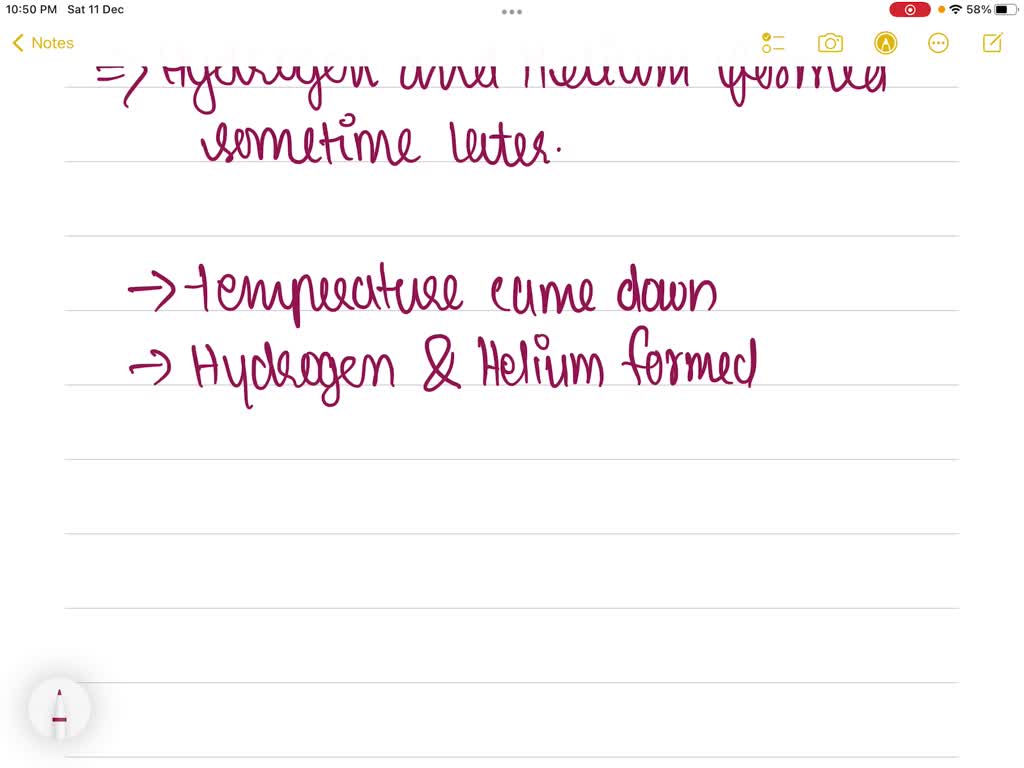 10:50 PM Sat 11 Dec
58%
Notes
=> Hydrogen and Helium formed
sometime later.
→ temperature came down
→ Hydrogen & Helium formed